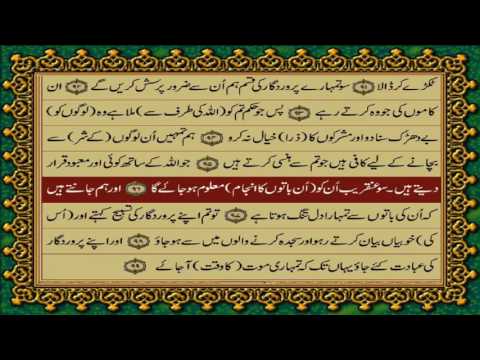 ٹکڑے کر ڈالا ﴿۹۱﴾ سو تمہارے پروردگار کی قسم ہم اُن سے ضرور پرسش کریں گے ﴿۹۲﴾ ان
کاموں کی جو وہ کرتے رہے ﴿۹۳﴾ پس جو حکم تم کو (اللہ کی طرف سے) ملا ہے وہ (لوگوں کو)
بے دھڑک سنا دو اور مشرکوں کا (ذرا) خیال نہ کرو ﴿۹۴﴾ ہم تمہیں اُن لوگوں (کے شر) سے
بچانے کے لیے کافی ہیں جو تم سے ہنسی کرتے ہیں ﴿۹۵﴾ جو اللہ کے ساتھ کوئی اور معبود قرار
دیتے ہیں۔ سو عنقریب اُن کو (اُن باتوں کا انجام) معلوم ہو جائے گا ﴿۹۶﴾ اور ہم جانتے ہیں
کہ اُن کی باتوں سے تمہارا دل تنگ ہوتا ہے ﴿۹۷﴾ تو تم اپنے پروردگار کی تسبیح کہتے اور (اُس
کی) خوبیاں بیان کرتے رہو اور سجدہ کرنے والوں میں سے ہو جاؤ ﴿۹۸﴾ اور اپنے پروردگار
کی عبادت کئے جاؤ یہاں تک کہ تمہاری موت (کا وقت) آ جائے ﴿۹۹﴾